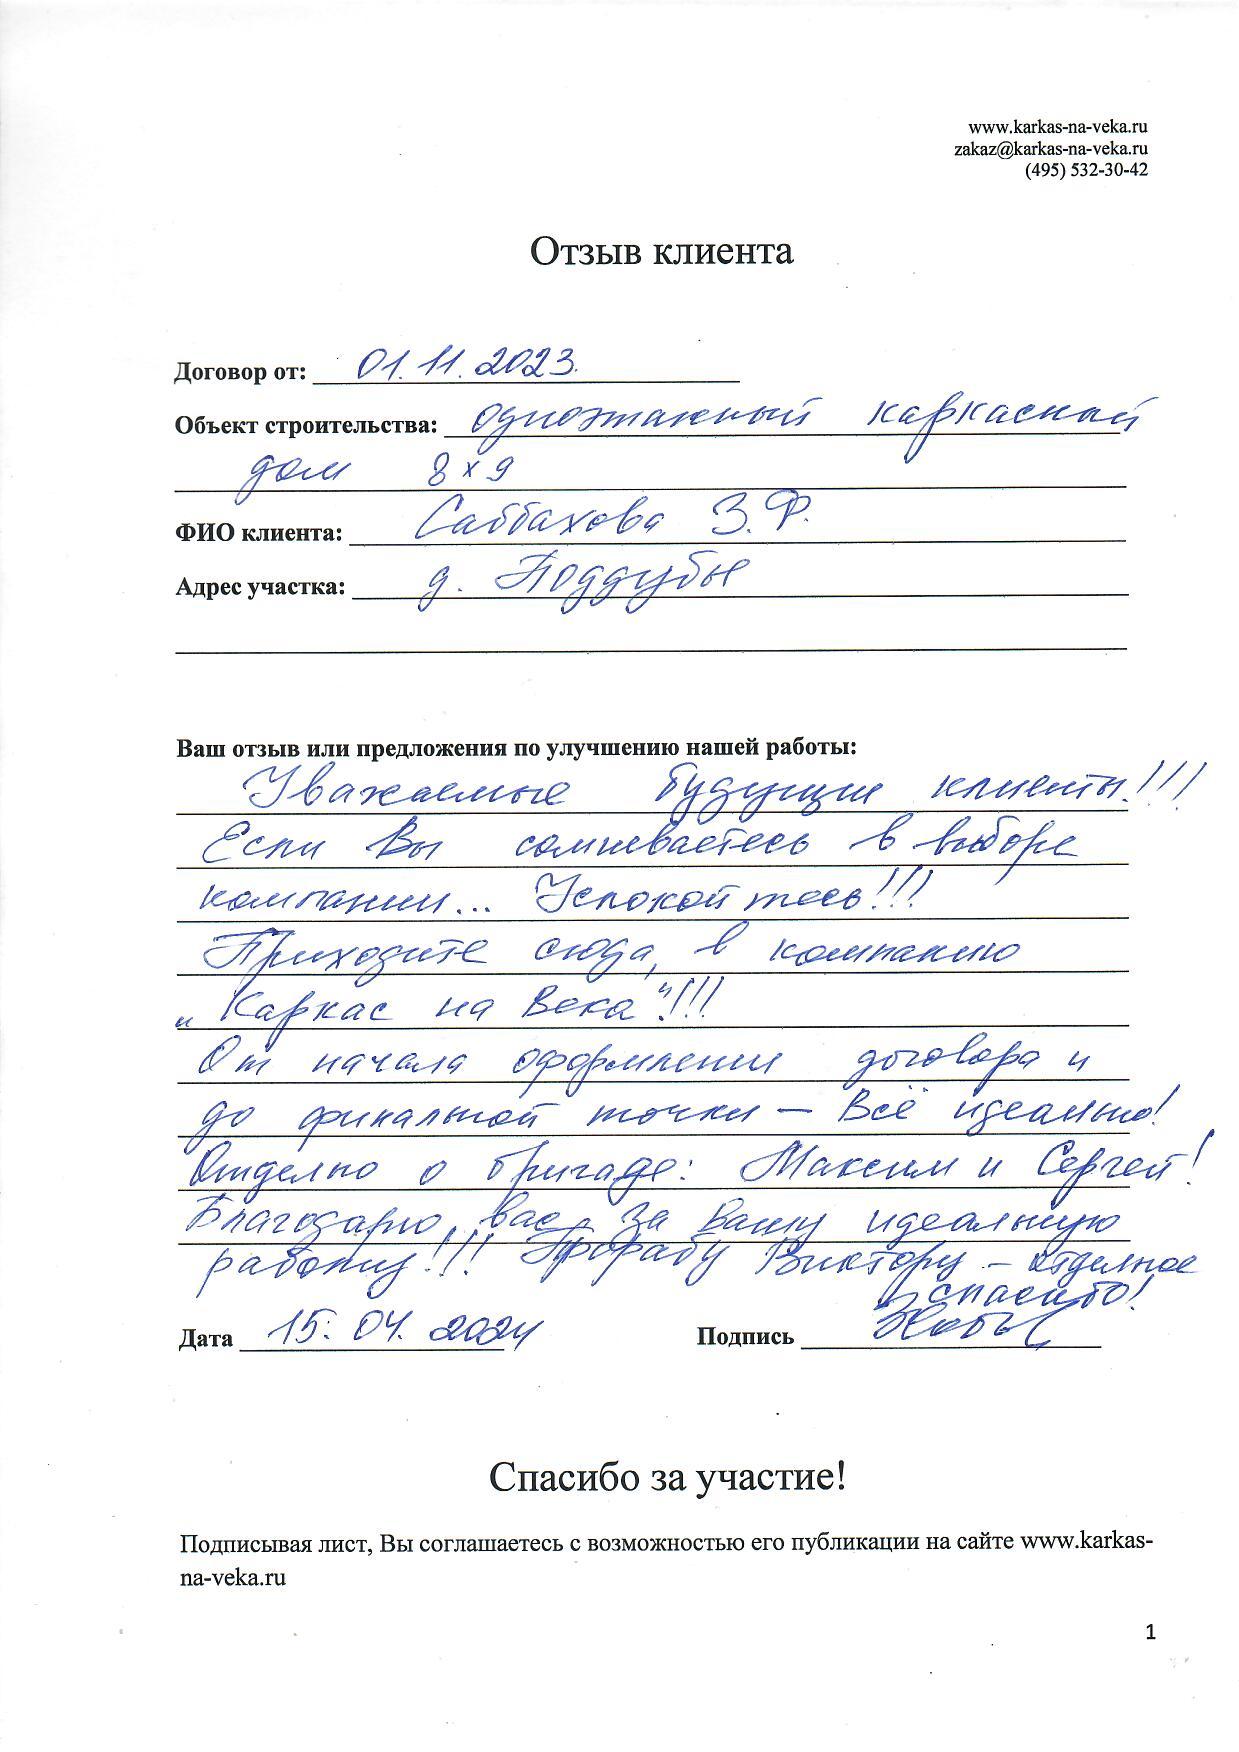 www.karkas-na-veka.ru
zakaz@karkas-na-veka.ru
(495) 532-30-42
Отзыв клиента
Договор от: 01.11.2023.
Объект строительства: одноэтажный каркасный
дом 8х9
ФИО клиента: Саббахова З.Ф.
Адрес участка: д. Поддубы
Ваш отзыв или предложения по улучшению нашей работы:
Уважаемые будущие клиенты!!!
Если Вы сомневаетесь в выборе
компании... Успокойтесь!!!
Приходите сюда, в компанию
„Каркас на Века"!!!
От начала оформлении договора и
до финальной точки – Всё идеально!
Отдельно о бригаде: Максим и Сергей!
Благодарю вас за вашу идеальную
работу!!! Прорабу Виктору – отдельное
спасибо!
Дата 15.04.2024 Подпись
Спасибо за участие!
Подписывая лист, Вы соглашаетесь с возможностью его публикации на сайте www.karkas-
na-veka.ru
1